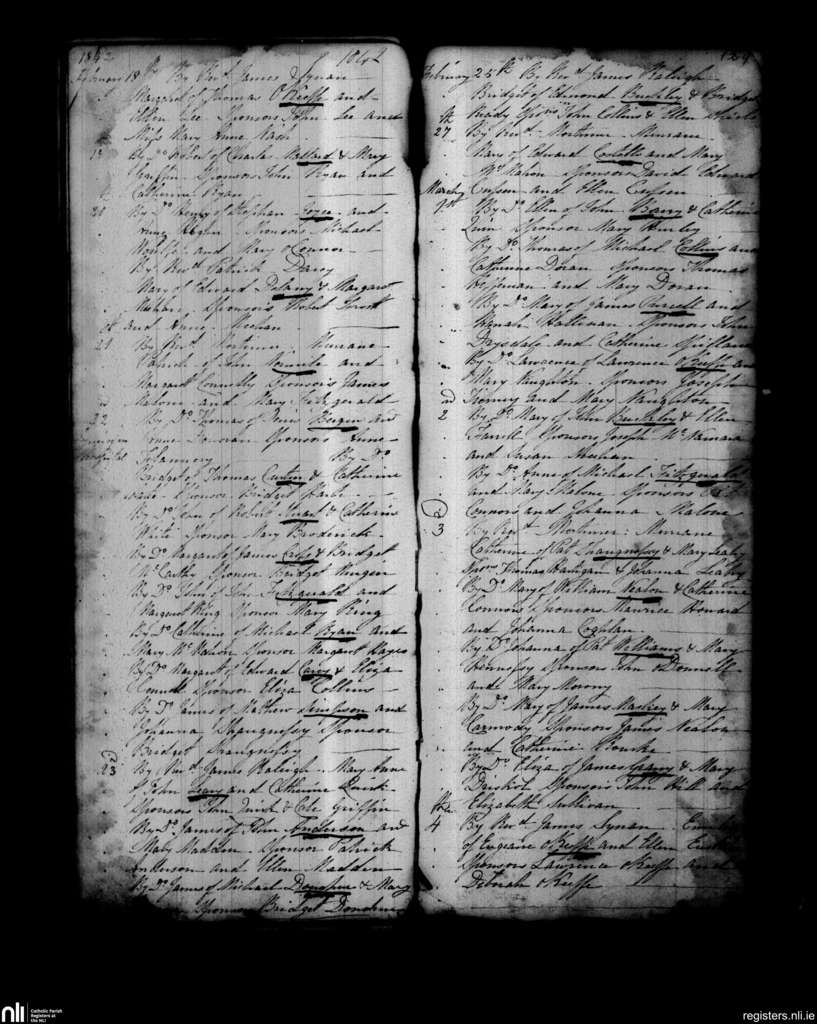 1842 1842
February 18th By Revd James Synan
Margaret of Thomas O'Keeffe and
Ellen Lee Sponsors John Lee and
Miss Mary Anne Nash
19 By Do Robert of Charles & Mary
Griffin Sponsors John Ryan and
Catherine Ryan
20 By Do Henry of Stephen Joyce and
Anne Sponsors Michael
and Mary O'Connor
By Revd Patrick Darcy
Mary of Edward Delany & Margaret
Meehan Sponsors Robert
and Anne Meehan
21 By Revd Mortimer Murnane
Patrick of John and
Margaret Connelly Sponsors James
Malone and Mary Fitzgerald
22 By Do Thomas of Denis Bergin and
Anne Donovan Sponsor Anne
Flannery By Do
Bridget of Thomas Curtin & Catherine
Sponsor Bridget
By Do Jean of Robert Stuart & Catherine
White Sponsor Mary Broderick
By Do Margaret of James Cross & Bridget
McCarthy Sponsor Bridget
By Do John of John Fitzgerald and
Margaret King Sponsor Mary King
By Do Catherine of Michael Ryan and
Mary McMahon Sponsor Margaret Hayes
By Do Margaret of Edward Carey & Eliza
Sponsor Eliza Collins
By Do James of Mathew Simpson and
Johanna Shaugnessy Sponsor
Bridget Shaugnessy
23 By Revd James Raleigh Mary Anne
of John Leary and Catherine Quirk
Sponsors John Quirk & Cate Griffin
By Do James of John Anderson and
Mary Madden Sponsor Patrick
Anderson and Ellen Madden
By Do James of Michael Donohue & Mary
Sponsor Bridget Donohue
February 25th By Revd James Raleigh
Bridget of Edmond Buckley & Bridget
Ready Sponrs John Collins & Ellen
27 By Revd Mortimer Murnane
Mary of Edward Costello and Mary
McMahon Sponsors David Edward
Cussen and Ellen Cussen
March 1st By Do Ellen of John Barry & Catherine
Quin Sponsor Mary Hurley
By Do Thomas of Michael Collins and
Catherine Doran Sponsors Thomas
and Mary Doran
By Do Mary of James Purcell and
Honah Halloran Sponsors John
Drysdale and Catherine
By Do Lawrence of Lawrence O'Keeffe and
Mary Naughton Sponsors Joseph
and Mary Naughton
2 By Do Mary of John Buckley & Ellen
Farrell Sponsors Joseph McNamara
and Susan Meehan
By Do Anne of Michael Fitzgerald
and Mary Malone Sponsors Pat
Connors and Johanna Malone
3 By Revd Mortimer Murnane
Catherine of Pat Shaugnessy & Mary Leahy
Sponrs Thomas Hartigan & Johanna Leahy
By Do Mary of William Nealon & Catherine
Connors Sponsors Maurice Howard
and Johanna Coghlan
By Do Johanna of Pat Williams & Mary
Hennessy Sponsors John O'Donnell
and Mary Morony
By Do Mary of James Mackey & Mary
Carmody Sponsors James Nealon
and Catherine Rourke
By Do Eliza of James Geary & Mary
Driskol Sponsors John Hill and
Elizabeth Sullivan
4th By Revd James Synan
of Eugene O'Keeffe and Ellen
Sponsors Lawrence O'Keeffe and
Deborah O'Keeffe
nli Catholic Parish
Registers at
the NLI
registers.nli.ie